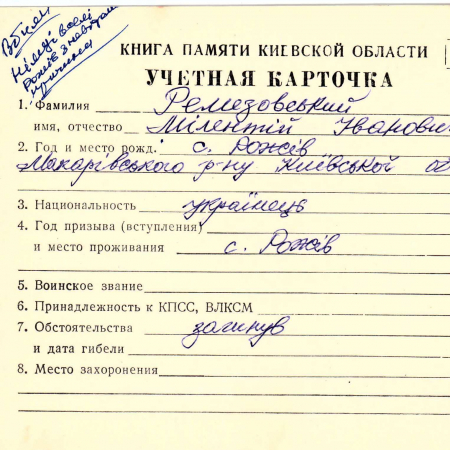 Вбили
німці в селі
Рожів з невідомих
причин
КНИГА ПАМЯТИ КИЕВСКОЙ ОБЛАСТИ
УЧЕТНАЯ КАРТОЧКА
1. Фамилия Ремезовський
имя, отчество Мілентій Іванович
2. Год и место рожд. с. Рожів
Макарівського р-ну Київської об
3. Национальность українець
4. Год призыва (вступления)
и место проживания с. Рожів
5. Воинское звание
6. Принадлежность к КПСС, ВЛКСМ
7. Обстоятельства загинув
и дата гибели
8. Место захоронения